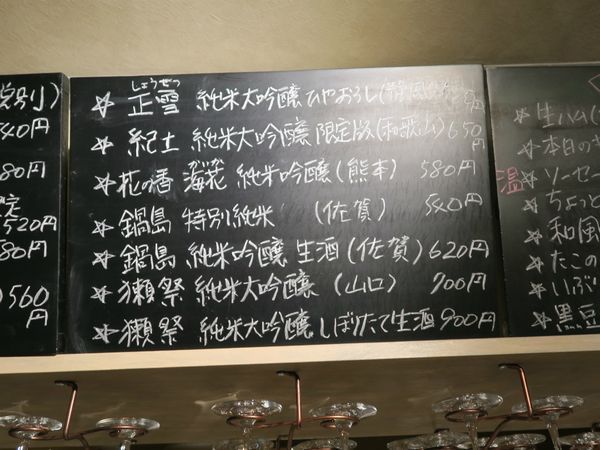 540円
580円
520円
580円
560
円
しょうせつ
☆ 正雪 純米大吟醸 ひやおろし(静岡)
☆ 紀土 純米大吟醸 限定版(和歌山)650円
☆ 花の香 海花 純米吟醸(熊本) 580円
☆ 鍋島 特別純米 (佐賀) 540円
☆ 鍋島 純米吟醸 生酒(佐賀) 620円
☆ 獺祭 純米大吟醸 (山口) 700円
☆ 獺祭 純米大吟醸 しぼりたて生酒 900円
☆ 生ハム
☆ 本日の
温 ☆ ソーセー
☆ ちょっと
☆ 和風
☆ たこの
☆ いぶ
☆ 黒豆